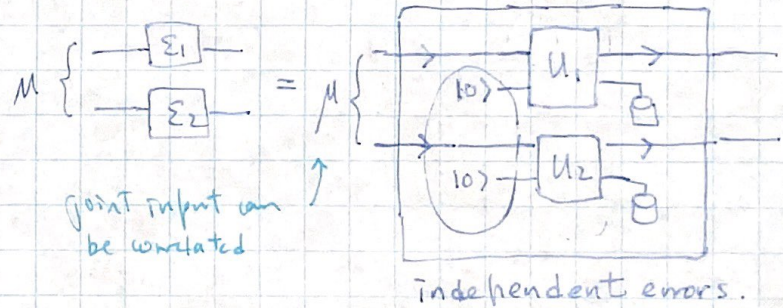 ℰ₁
μ { ℰ₂ = μ {
|0⟩ U₁
|0⟩ U₂
joint input can
be correlated
independent errors.